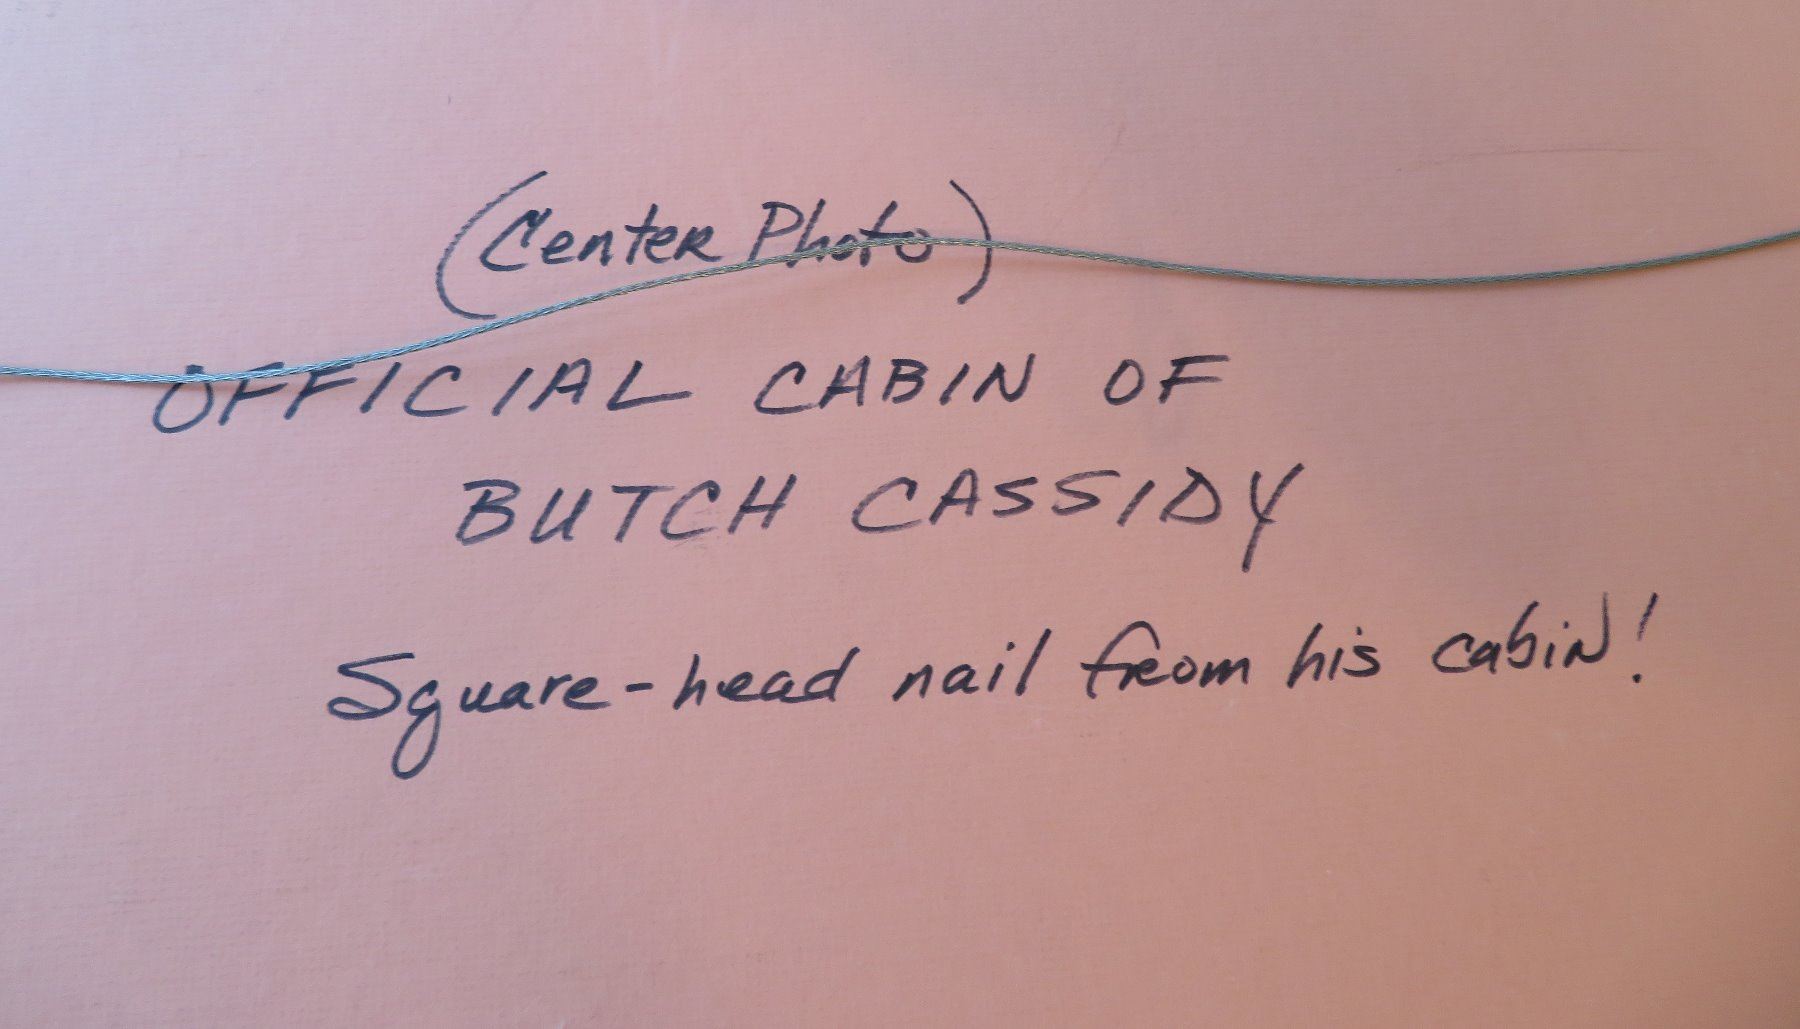 (Center Photo)
OFFICIAL CABIN OF
BUTCH CASSIDY
Square-head nail from his cabin!